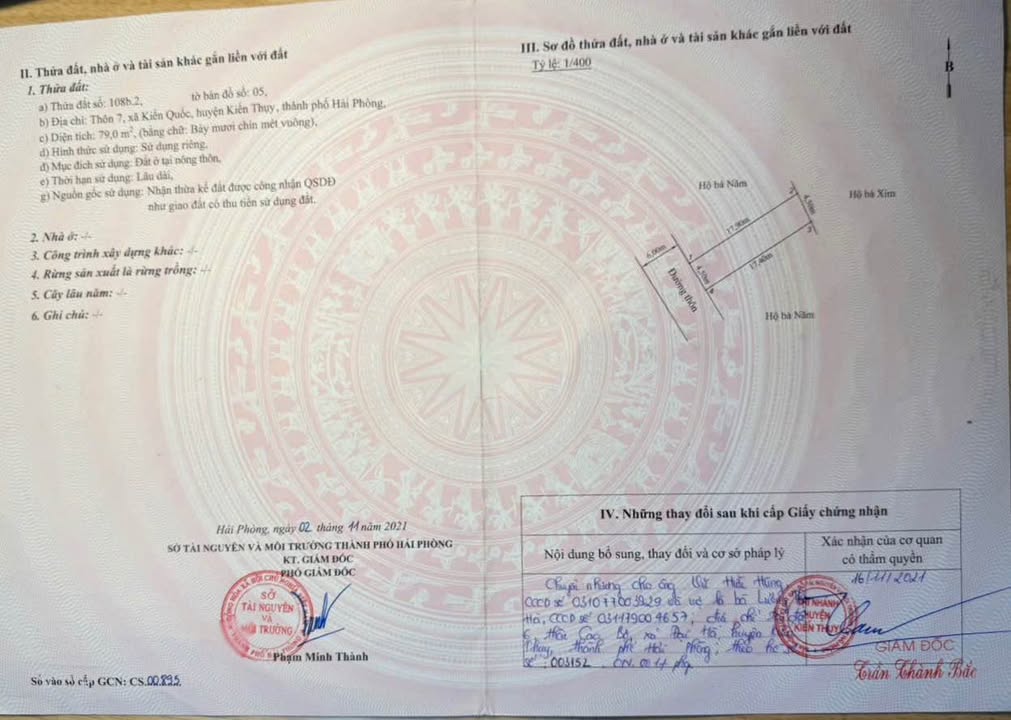 II. Thửa đất, nhà ở và tài sản khác gắn liền với đất
1. Thửa đất:
a) Thửa đất số: 108b.2, tờ bản đồ số: 05,
b) Địa chỉ: Thôn 7, xã Kiến Quốc, huyện Kiến Thụy, thành phố Hải Phòng,
c) Diện tích: 79,0 m², (bằng chữ: Bảy mươi chín mét vuông),
d) Hình thức sử dụng: Sử dụng riêng,
đ) Mục đích sử dụng: Đất ở tại nông thôn,
e) Thời hạn sử dụng: Lâu dài,
g) Nguồn gốc sử dụng: Nhận thừa kế đất được công nhận QSDĐ
như giao đất có thu tiền sử dụng đất.
2. Nhà ở: -/-
3. Công trình xây dựng khác: -/-
4. Rừng sản xuất là rừng trồng: -/-
5. Cây lâu năm: -/-
6. Ghi chú: -/-
Hải Phòng, ngày 02 tháng 11 năm 2021
SỞ TÀI NGUYÊN VÀ MÔI TRƯỜNG THÀNH PHỐ HẢI PHÒNG
KT. GIÁM ĐỐC
PHÓ GIÁM ĐỐC
SỞ
TÀI NGUYÊN
VÀ
MÔI TRƯỜNG
Phạm Minh Thành
Số vào sổ cấp GCN: CS.00895
III. Sơ đồ thửa đất, nhà ở và tài sản khác gắn liền với đất
Tỷ lệ: 1/400
B
Hộ bá Năm
Hộ bá Xim
17,90m
4,50m
6,00m
4,50m
17,40m
Đường thôn
Hộ bá Năm
IV. Những thay đổi sau khi cấp Giấy chứng nhận
Nội dung bổ sung, thay đổi và cơ sở pháp lý
Xác nhận của cơ quan
có thẩm quyền
Chuyển nhượng cho ông Hùng
CCCD số và vợ là bà
Hà, CCCD số địa chỉ
thôn xã huyện
Thụy, thành phố Hải Phòng; theo hồ sơ
số: 003152
16/11/2021
CHI NHÁNH
HUYỆN
KIẾN THỤY
GIÁM ĐỐC
Trần Thành Bắc